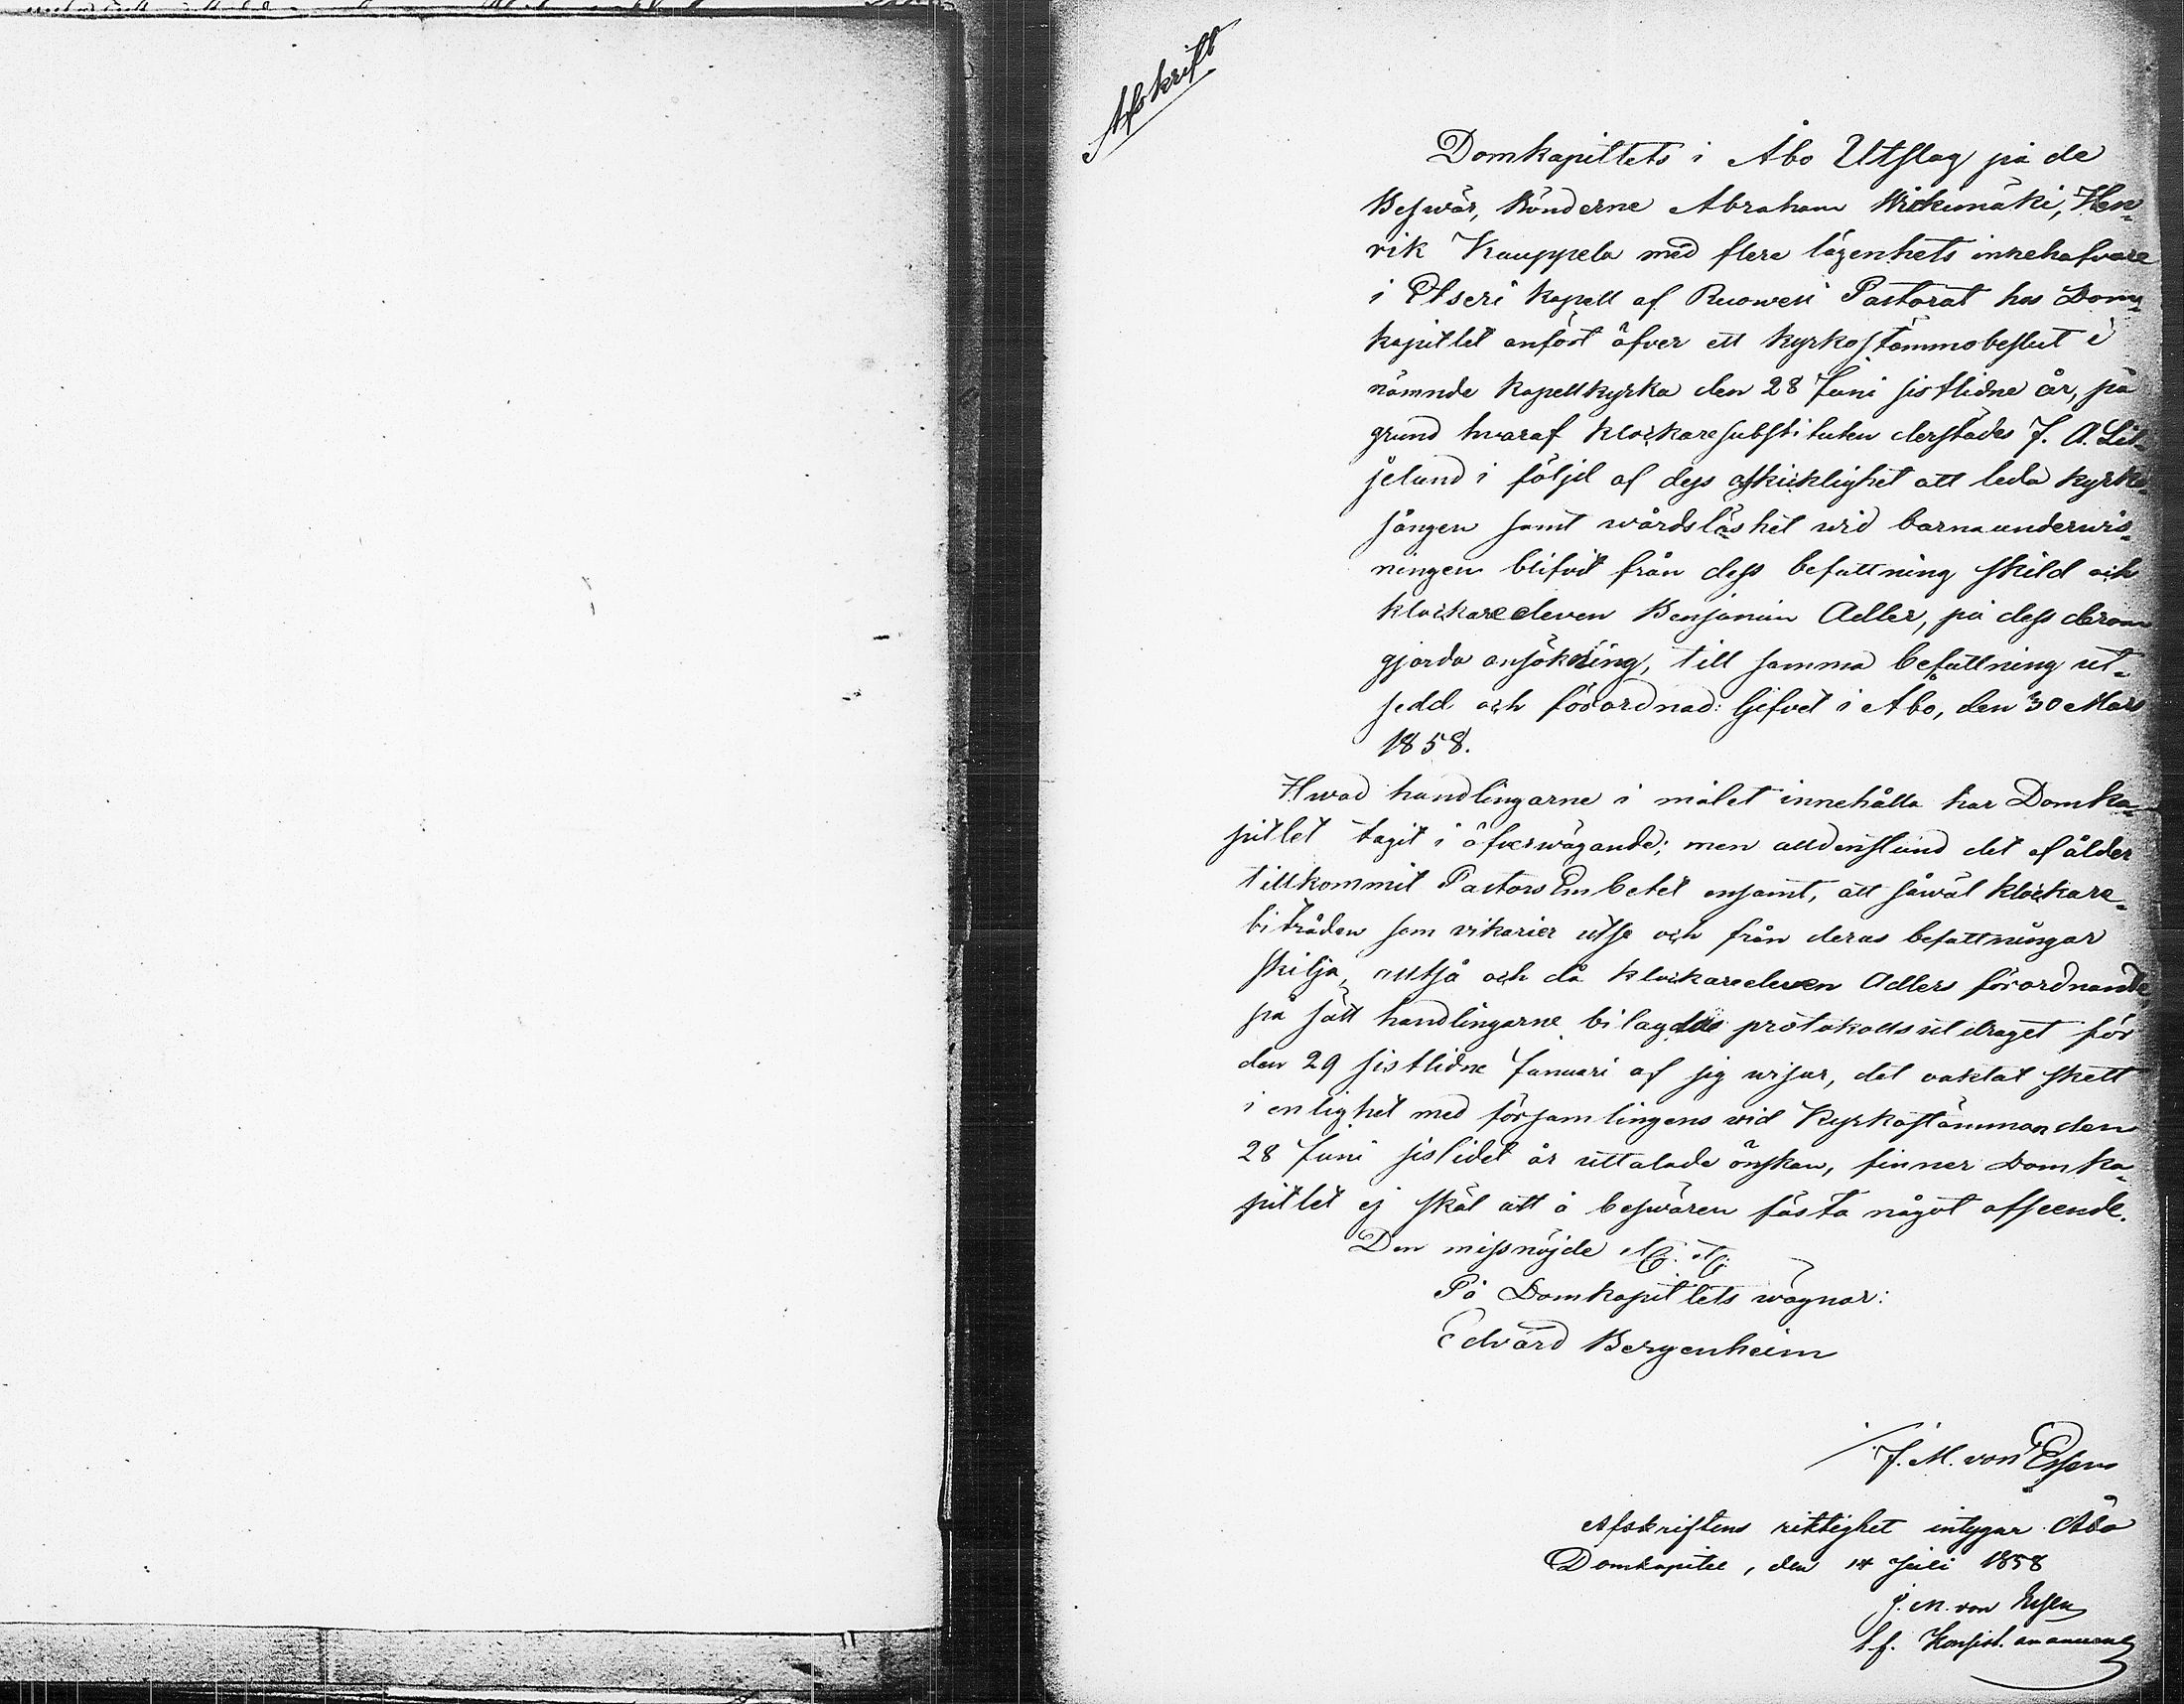 Afskrift
Domkapitlets i Åbo Utslag på de
Beswär, Bönderne Abraham Wickimäki, Hen-
rik Kauppela med flere lägenhets innehafvare
i Etseri kapell af Ruowesi Pastorat hos Dom-
kapitlet anfört öfver ett kyrkostämmobeslut i
nämnde kapellkyrka den 28 Juni sistlidne år, på
grund hwaraf klockaresubstituten derstädes J. A. Lil-
jelund i följd af dess oskicklighet att leda kyrko-
sången samt wårdslöshet wid barnaunderwis-
ningen blifvit från dess befattning skild och
klockareeleven Benjamin Adler, på dess derom
gjorda ansökning, till samma befattning ut-
sedd och förordnad: Gifvet i Åbo, den 30 Mars
1858.
Hwad handlingarne i målet innehålla har Domka-
pitlet tagit i öfverwägande; men alldenstund det af ålder
tillkommit PastorsEmbetet ensamt, att såwäl klockare-
biträden som vikarier utse och från deras befattningar
skilja, alltså och då klockareeleven Adlers förordnande,
på sätt handlingarne bilagda protokollsutdraget för
den 29 sistlidne Januari af sig wisar, det oaktat skett
i enlighet med församlingens wid Kyrkostämman den
28 Juni sislidet år uttalade önskan, finner Domka-
pitlet ej skäl att å beswären fästa något afseende.
Den missnöjde
På Domkapitlets wägnar:
Edvard Bergenheim
J. M. von Essen
Afskriftens riktighet intygar Åbo
Domkapitel, den 14 Juli 1858
J. M. von Essen
t.f. Konsist. amanuens